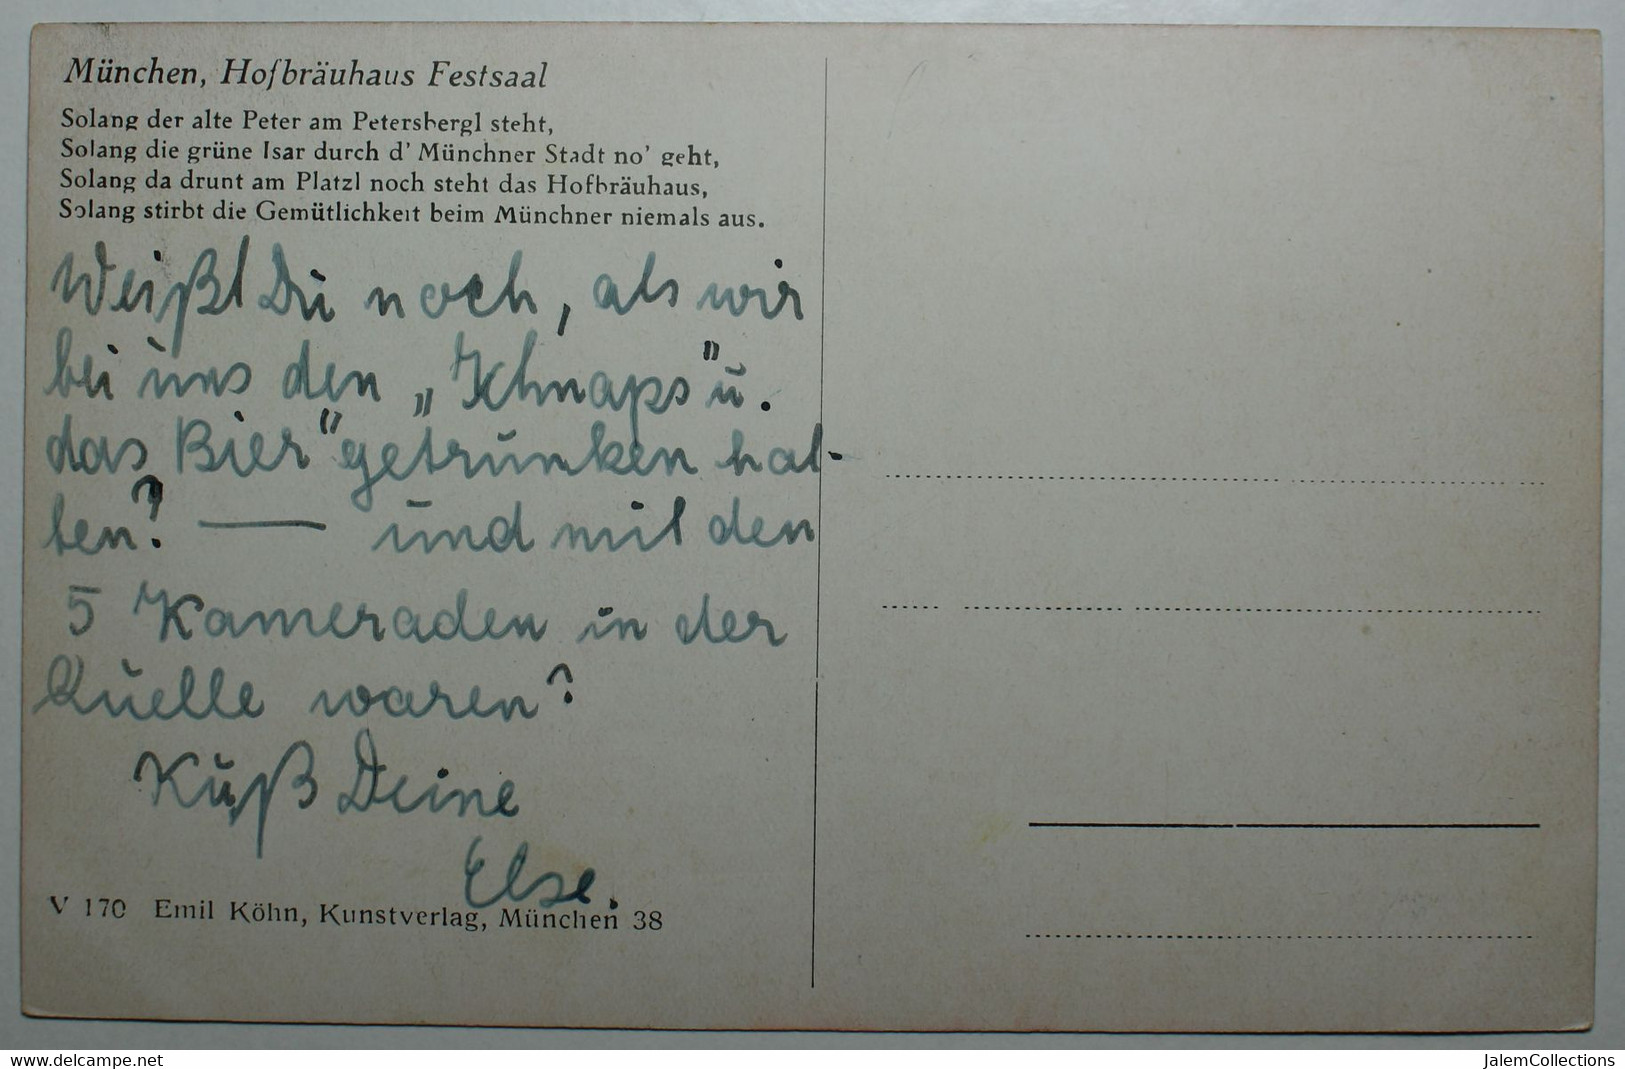 München, Hofbräuhaus Festsaal
Solang der alte Peter am Petersbergl steht,
Solang die grüne Isar durch d' Münchner Stadt no' geht,
Solang da drunt am Platzl noch steht das Hofbräuhaus,
Solang stirbt die Gemütlichkeit beim Münchner niemals aus.
Weißt Du noch, als wir
bei uns den „Schnaps" u.
das Bier" getrunken hat-
ten? — und mit den
5 Kameraden in der
Quelle waren?
Kuß Deine
Else.
V 170 Emil Köhn, Kunstverlag, München 38
old card to see in real
JalemCollections